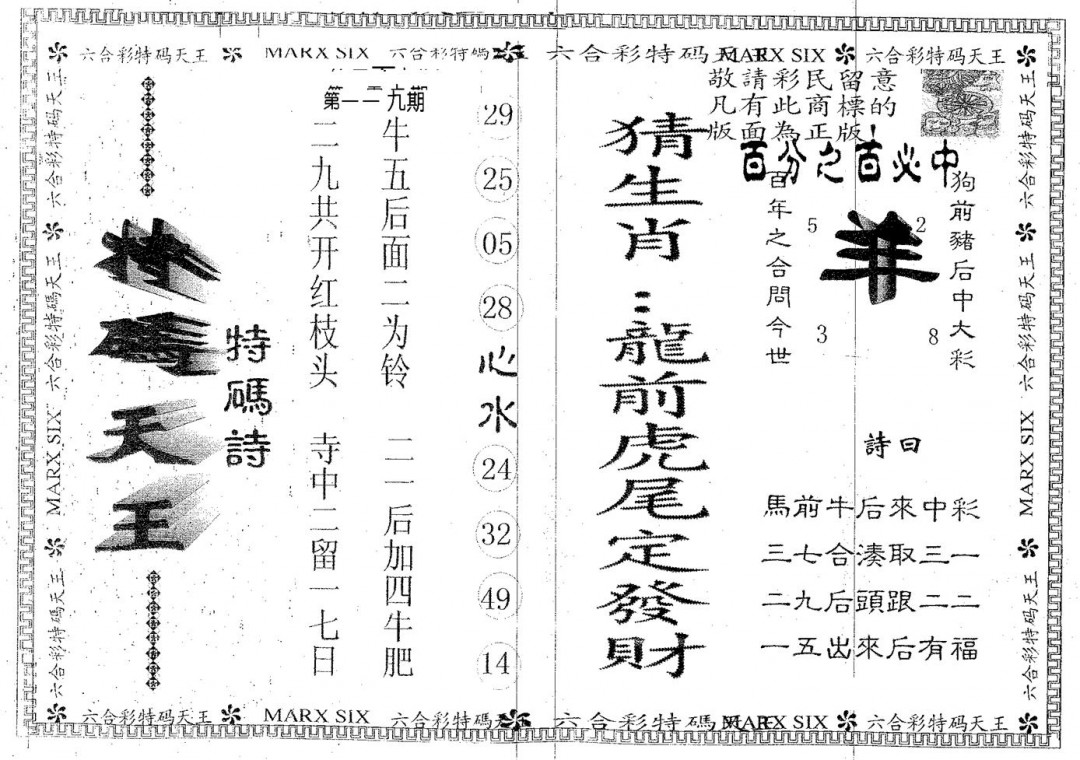 六合彩特码天王 MARX SIX 六合彩特码天王 六合彩特码天王 MARX SIX 六合彩特码天王
敬請彩民留意
凡有此商標的
版面為正版!
百分之百必中
狗前豬后中大彩
羊
5
2
3
8
百年之合問今世
詩曰
馬前牛后來中彩
三七合湊取三一
二九后頭跟二二
一五出來后有福
猜生肖:龍前虎尾定發財
29
25
05
28
心水
24
32
49
14
第一一九期
牛五后面二为铃 二一后加四牛肥
二九共开红枝头 寺中二留一七日
特碼詩
特碼天王
六合彩特码天王 MARX SIX 六合彩特碼天王 六合彩特碼天王 MARX SIX 六合彩特碼天王
六合彩特碼天王 六合彩特碼天王 MARX SIX 六合彩特碼天王
六合彩特碼天王 六合彩特碼天王 MARX SIX 六合彩特碼天王